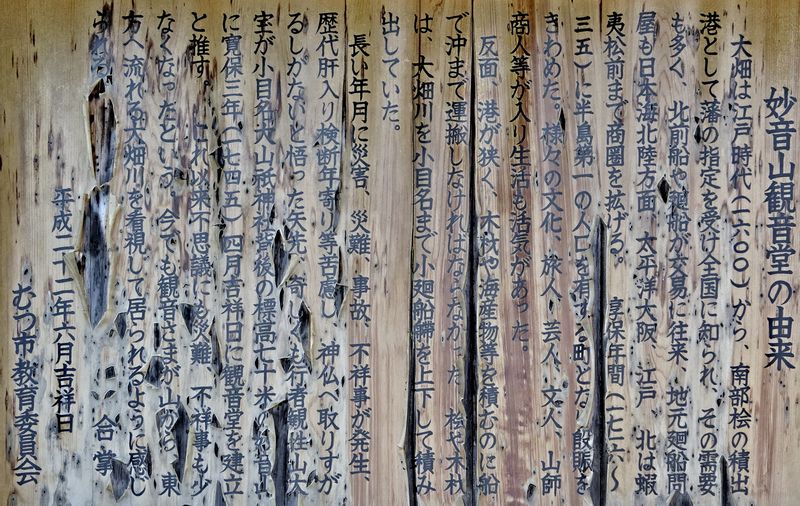 妙音山観音堂の由来
大畑は江戸時代(一六〇〇)から、南部桧の積出
港として藩の指定を受け全国に知られ、その需要
も多く、北前船や組船が交易に往来、地元廻船問
屋も日本海北陸方面、太平洋大阪、江戸、北は蝦
夷松前まで商圏を拡げる。 享保年間(一七一六〜
三五)に半島第一の人口を有する町となり殷賑を
きわめた。様々の文化、旅人、芸人、文人、山師
商人等が入り生活も活気があった。
反面、港が狭く、木材や海産物等を積むのに船
で沖まで運搬しなければならなかった。桧や木材
は、大畑川を小目名まで小廻船を上下して積み
出していた。
長い年月に災害、災難、事故、不祥事が発生、
歴代肝入り検断年寄り等苦慮し、神仏へ取りすが
るしかないと悟った矢先、寄りも行者観性山大
室が小目名大山祇神社背後の標高七十米の音山
に寛保三年(一七四五)四月吉祥日に観音堂を建立
と推す。これ以来不思議にも災難、不祥事も少
なくなったという。今でも観音さまが山から、東
方へ流れる大畑川を看視して居られるように感じ
られる。 合掌
平成二十二年六月吉祥日
むつ市教育委員会